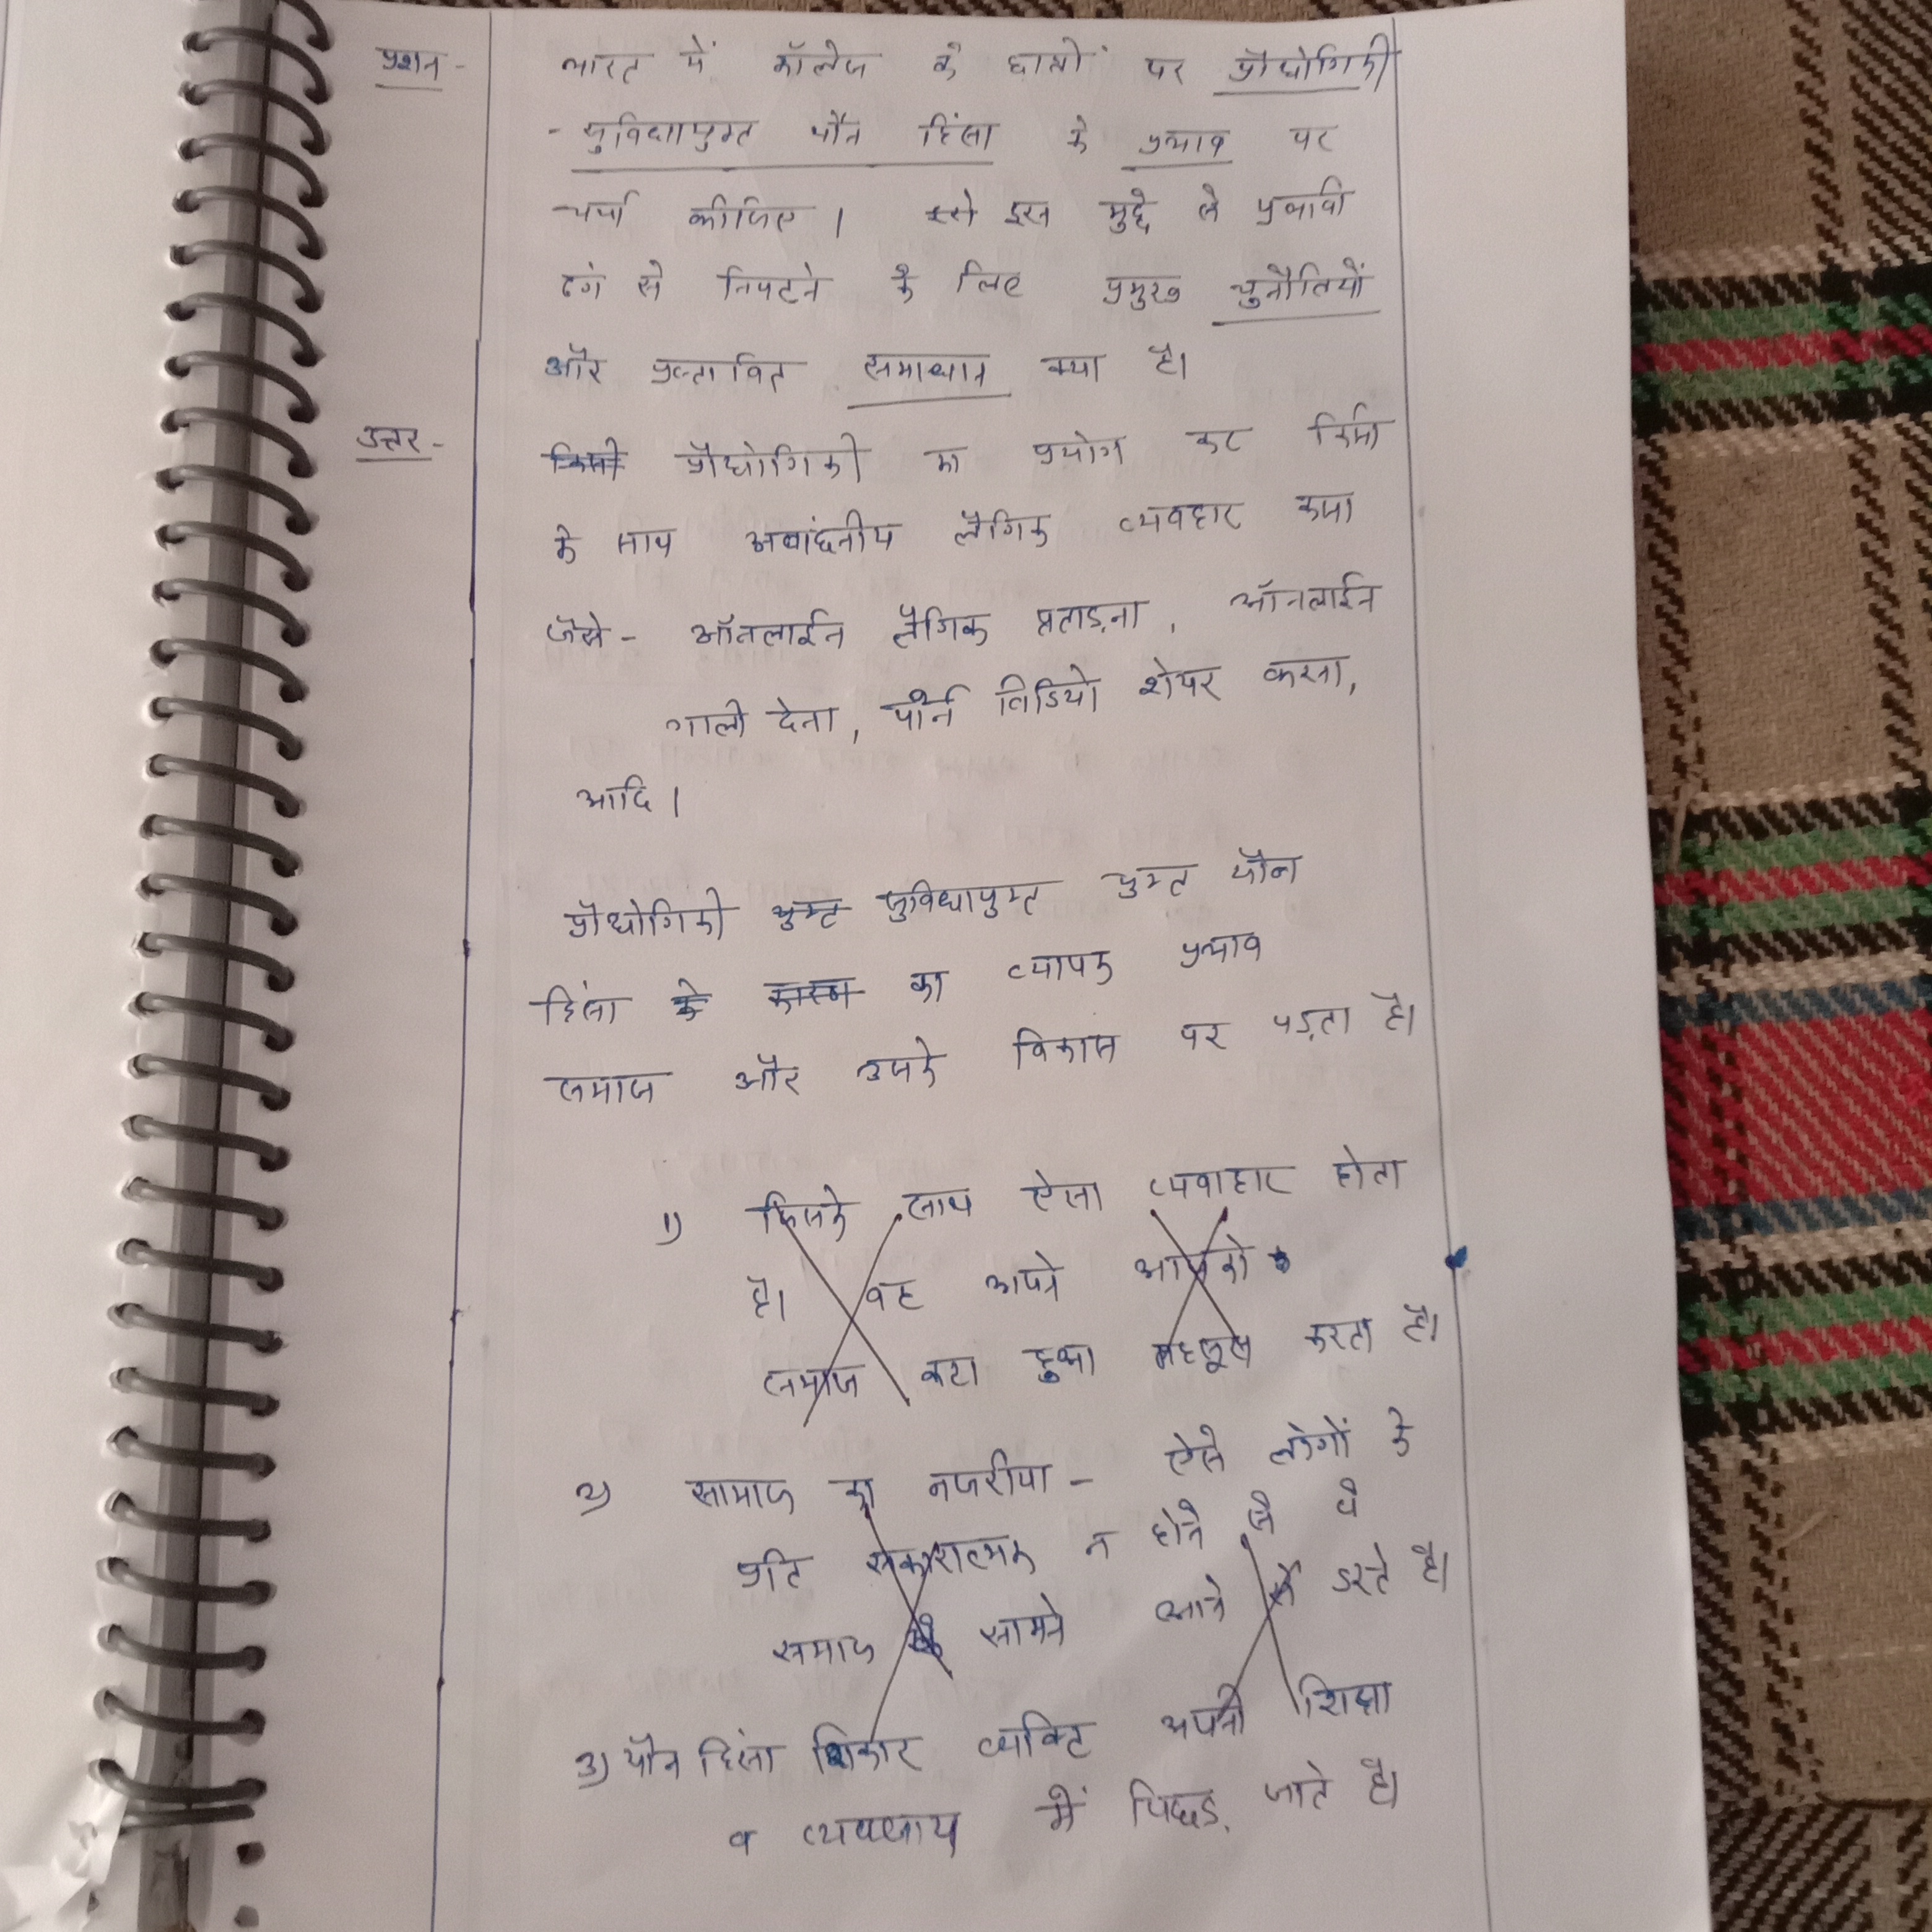 प्रशन - भारत में कॉलेज के छात्रों पर प्रौघोगिकी
- सुविधायुक्त यौन हिंसा के प्रभाव पर
चर्चा कीजिए । इस मुद्दे से प्रभावी
ढंग से निपटने के लिए प्रमुख चुनौतियों
और प्रस्तावित समाधान क्या है।
उत्तर - प्रौघोगिकी का प्रयोग कर किसी
के साथ अवांछनीय लैंगिक व्यवहार करना
जैसे - ऑनलाईन लैंगिक प्रताड़ना , ऑनलाईन
गाली देना , पोर्न विडियो शेयर करना,
आदि ।
प्रौघोगिकी सुविधायुक्त युक्त यौन
हिंसा का व्यापक प्रभाव
समाज और उसके विकास पर पड़ता है।
1) जिसके साथ ऐसा व्यवाहार होता
है। वह अपने आपको
समाज कटा हुआ महसूस करता है।
2) सामाज का नजरीया - ऐसे लोगों के
प्रति सकारात्मक न होने से वे
समाज के सामने आने से डरते है।
3) यौन हिंसा शिकार व्यक्टि अपनी शिक्षा
व व्यवसाय में पिछड़ जाते है।